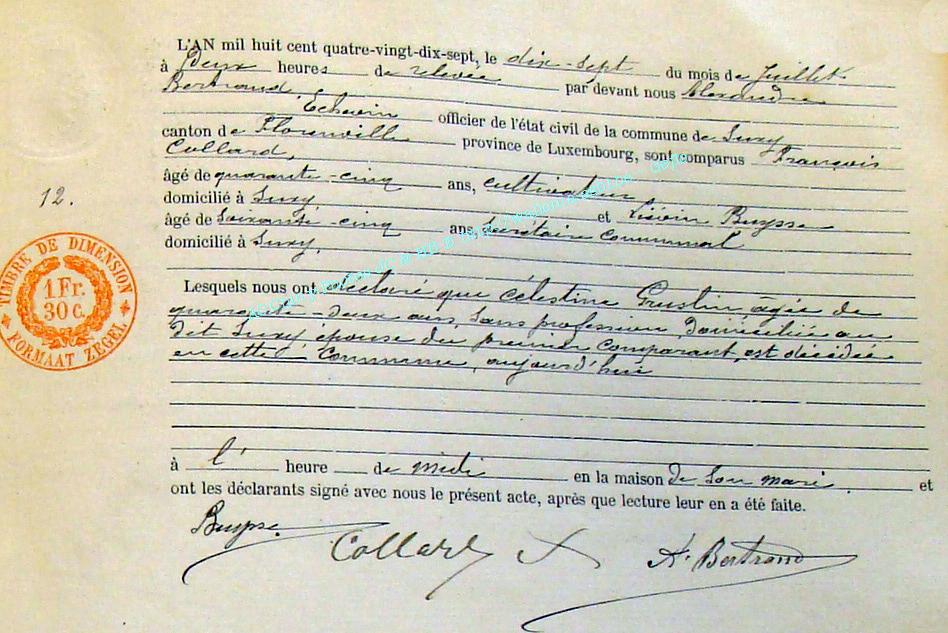 L'AN mil huit cent quatre-vingt-dix-sept, le dix-sept du mois de Juillet
à Deux heures de relevée par devant nous Alexandre
Bertrand, Echevin officier de l'état civil de la commune de Suxy
canton de Florenville province de Luxembourg, sont comparus François
Collard,
âgé de quarante-cinq ans, cultivateur
domicilié à Suxy et Liévin Buysse
âgé de Soixante-cinq ans, Secrétaire communal
domicilié à Suxy,
Lesquels nous ont déclaré que Célestine Guslin, agée de
quarante-deux ans, Sans profession, Domiciliée au
dit Suxy, épouse du premier comparant, est décédée
en cette Commune, aujourd'hui
à l' heure de midi en la maison de Son mari. et
ont les déclarants signé avec nous le présent acte, après que lecture leur en a été faite.
Buysse.
Collard
A. Bertrand
12.
TIMBRE DE DIMENSION
1 Fr.
30 c.
FORMAAT ZEGEL